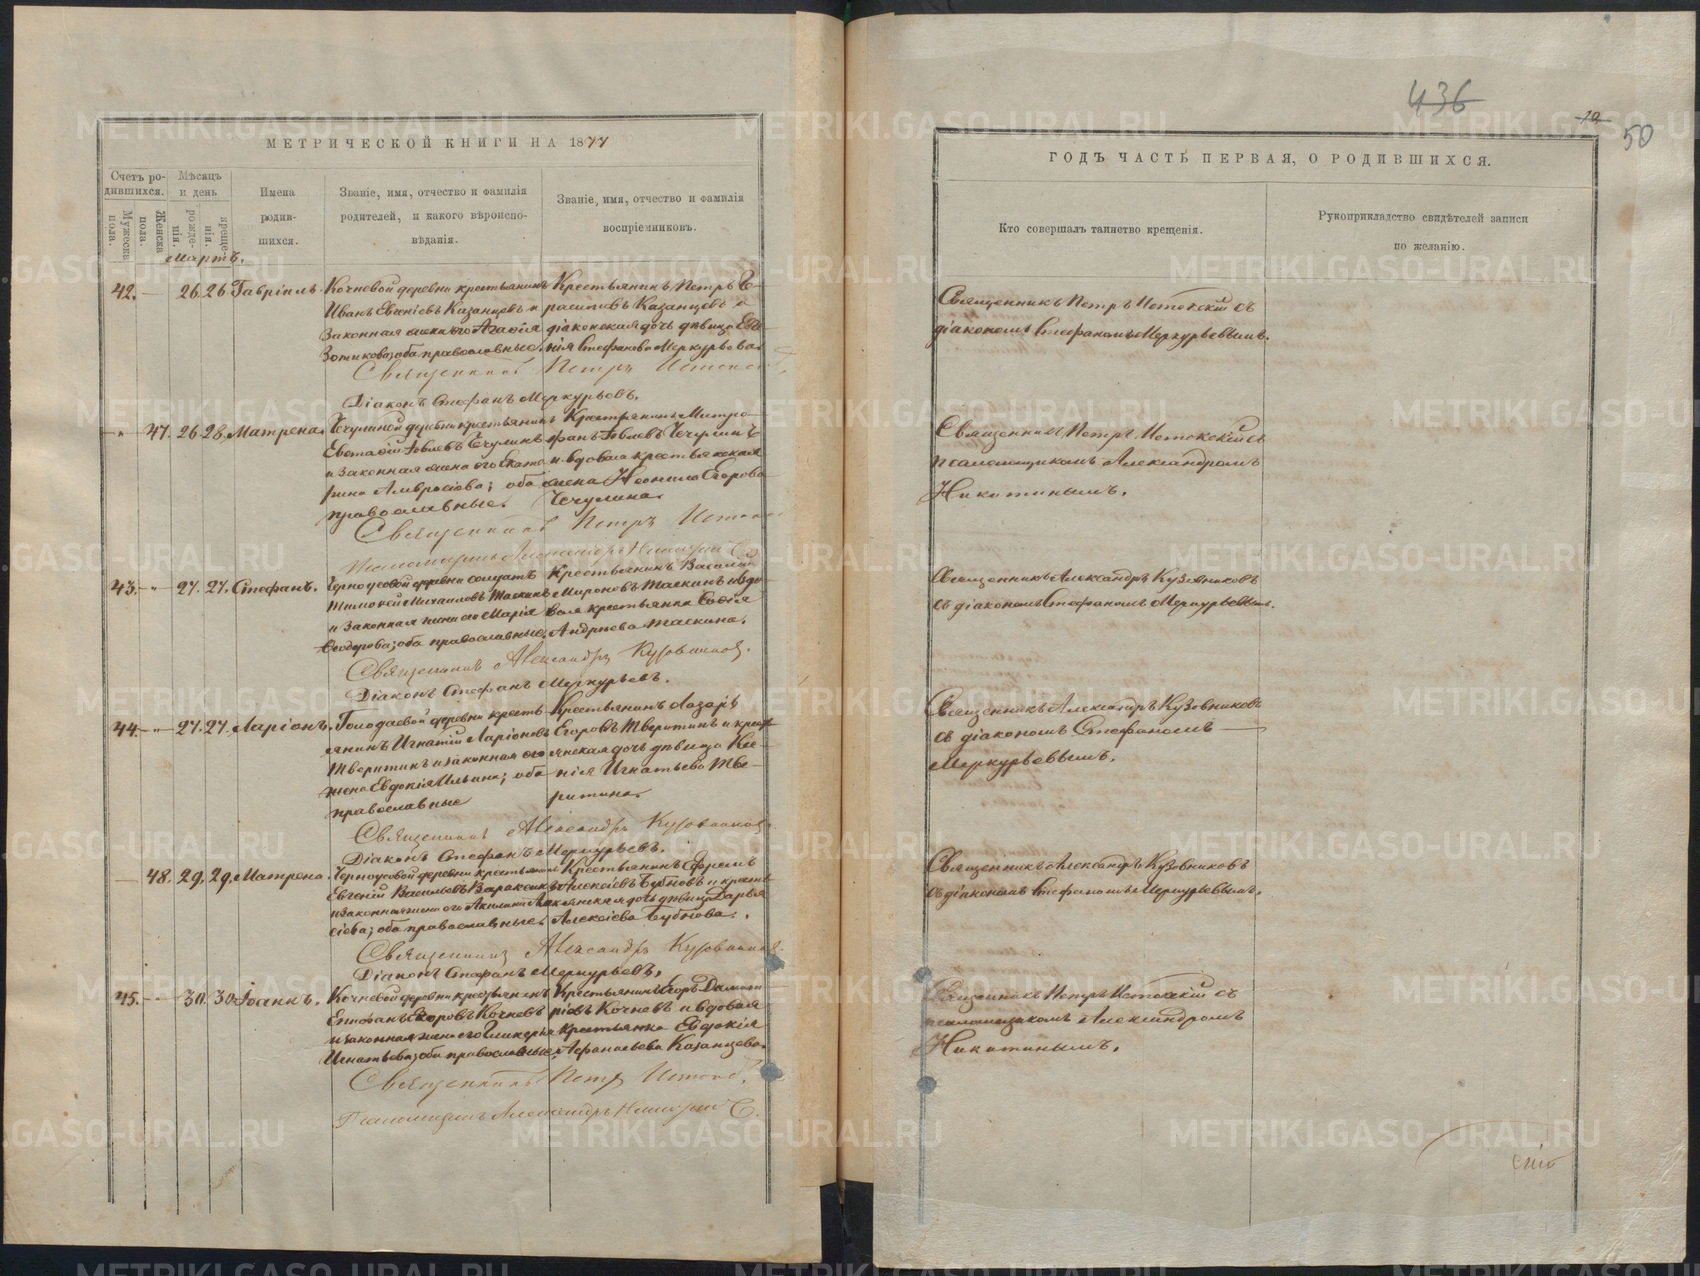 МЕТРИЧЕСКОЙ КНИГИ НА 1877
Счетъ ро-
дившихся.
Мужеска
пола.
Женска
пола.
Мѣсяцъ
и день
рожде-
нія.
креще-
нія.
Имена
родив-
шихся.
Званіе, имя, отчество и фамилія
родителей, и какого вѣроиспо-
вѣданія.
Званіе, имя, отчество и фамилія
воспріемниковъ.
Мартъ.
42. 26. 26. Гавріилъ.
Кочневой деревни крестьянинъ
Иванъ Казанцевъ и
законная жена его Агафія
Зотикова; оба православные.
Крестьянинъ Петръ Ге-
расимовъ Казанцевъ и
діаконская дочь дѣвица Евге-
нія Стефанова Меркурьева.
Священникъ Петръ
Діаконъ Стефанъ Меркурьевъ.
47. 26. 28. Матрена.
Чечулиной деревни крестьянинъ
Евстафій Іовлевъ Чечулинъ
и законная жена его Екате-
рина Амвросіева; оба
православные.
Крестьянинъ Митро-
фанъ Іовлевъ Чечулинъ
и вдовая крестьянская
жена Неонила Егорова
Чечулина.
Священникъ Петръ
Псаломщикъ Александръ
43. 27. 27. Стефанъ.
Черноусовой деревни солдатъ
Тимофей Михаиловъ Таскинъ
и законная жена его Марія
Ѳеодорова; оба православные.
Крестьянинъ Василій
Мироновъ Таскинъ и вдо-
вая крестьянка Софія
Андреева Таскина.
Священникъ Александръ Кузовниковъ.
Діаконъ Стефанъ Меркурьевъ.
44. 27. 27. Ларіонъ.
Голодаевой деревни кресть-
янинъ Игнатій Ларіоновъ
Тверитинъ и законная его
жена Евдокія Ильина; оба
православные
Крестьянинъ Лазарь
Егоровъ Тверитинъ и кресть-
янская дочь дѣвица Ксе-
нія Игнатьева Тве-
ритина.
Священникъ Александръ Кузовниковъ.
Діаконъ Стефанъ Меркурьевъ.
48. 29. 29. Матрена.
Черноусовой деревни крестьянинъ
Евгеній Васильевъ
и законная жена его Акилина Але-
ксіева; оба православные.
Крестьянинъ Ефремъ
Алексіевъ Бубновъ и кресть-
янская дочь дѣвица Дарья
Алексіева Бубнова.
Священникъ Александръ Кузовниковъ
Діаконъ Стефанъ Меркурьевъ.
45. 30. 30. Іоаннъ.
Кочневой деревни крестьянинъ
Епифанъ Егоровъ Кочневъ
и законная жена его Гликерія
Игнатьева; оба православные.
Крестьянинъ Егоръ
Кочневъ и вдовая
крестьянка Евдокія
Афанасьева Казанцева.
Священникъ Петръ
Псаломщикъ Александръ
436
19.
50
ГОДЪ ЧАСТЬ ПЕРВАЯ, О РОДИВШИХСЯ.
Кто совершалъ таинство крещенія.
Рукоприкладство свидѣтелей записи
по желанію.
Священникъ Петръ съ
діакономъ Стефаномъ Меркурьевымъ.
Священникъ Петръ съ
псаломщикомъ Александромъ
Никитинымъ.
Священникъ Александръ Кузовниковъ
съ діакономъ Стефаномъ Меркурьевымъ.
Священникъ Александръ Кузовниковъ
съ діакономъ Стефаномъ
Меркурьевымъ.
Священникъ Александръ Кузовниковъ
съ діакономъ Стефаномъ Меркурьевымъ.
Священникъ Петръ съ
псаломщикомъ Александромъ
Никитинымъ.
METRIKI.GASO-URAL.RU